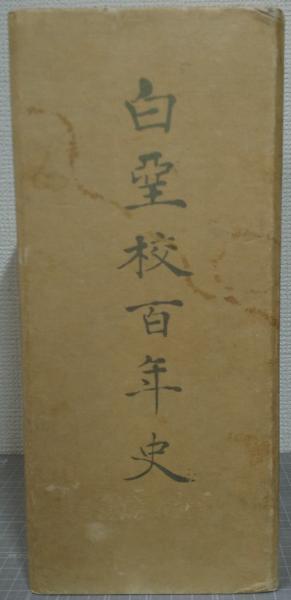 白堊校百年史